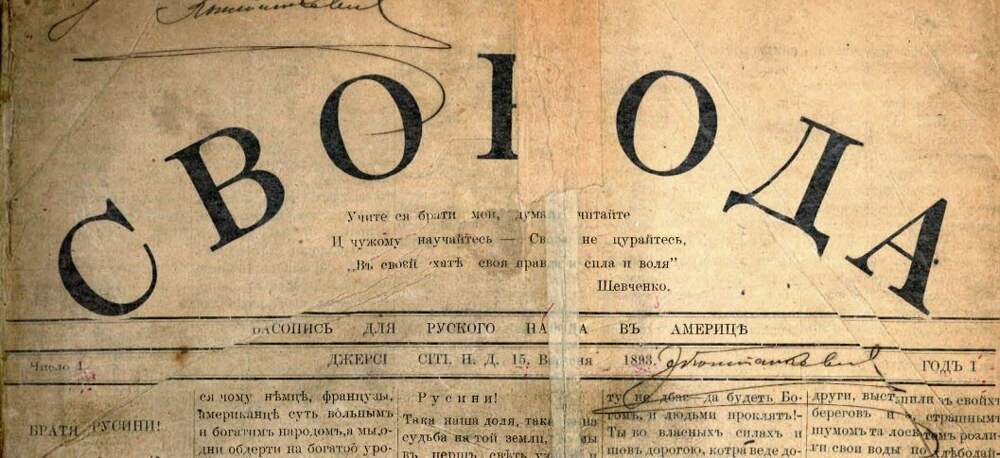 СВОБОДА
Учите ся брати мои, думайте, читайте
И чужому научайтесь — Свого не цурайтесь,
„Въ своєй хатѣ своя правда и сила и воля"
Шевченко.
ЧАСОПИСЬ ДЛЯ РУСКОГО НАРОДА ВЪ АМЕРИЦѢ
Число 1.
ДЖЕРСІ СІТІ. Н. Д. 15, Вересня 1893.
ГОДЪ І
БРАТЯ РУСИНИ!
ся чому нѣмцѣ, французы,
американцѣ суть вôльнымъ
и богатим народом, а мы, о-
дни обдерти на богатôй уро-
Русини!
Така наша доля, така наша
судьба на той земли,
въ першъ свѣтъ
ту не дбає — да будетъ Бо-
гомъ, и людьми проклятъ!-
Ты во власныхъ силахъ и
шовъ дорогою, котра веде до-
други, выступили зъ своихъ
береговъ и страшнымъ
шумомъ та лоскотомъ розли-
ги свои воды по хлѣбодай-